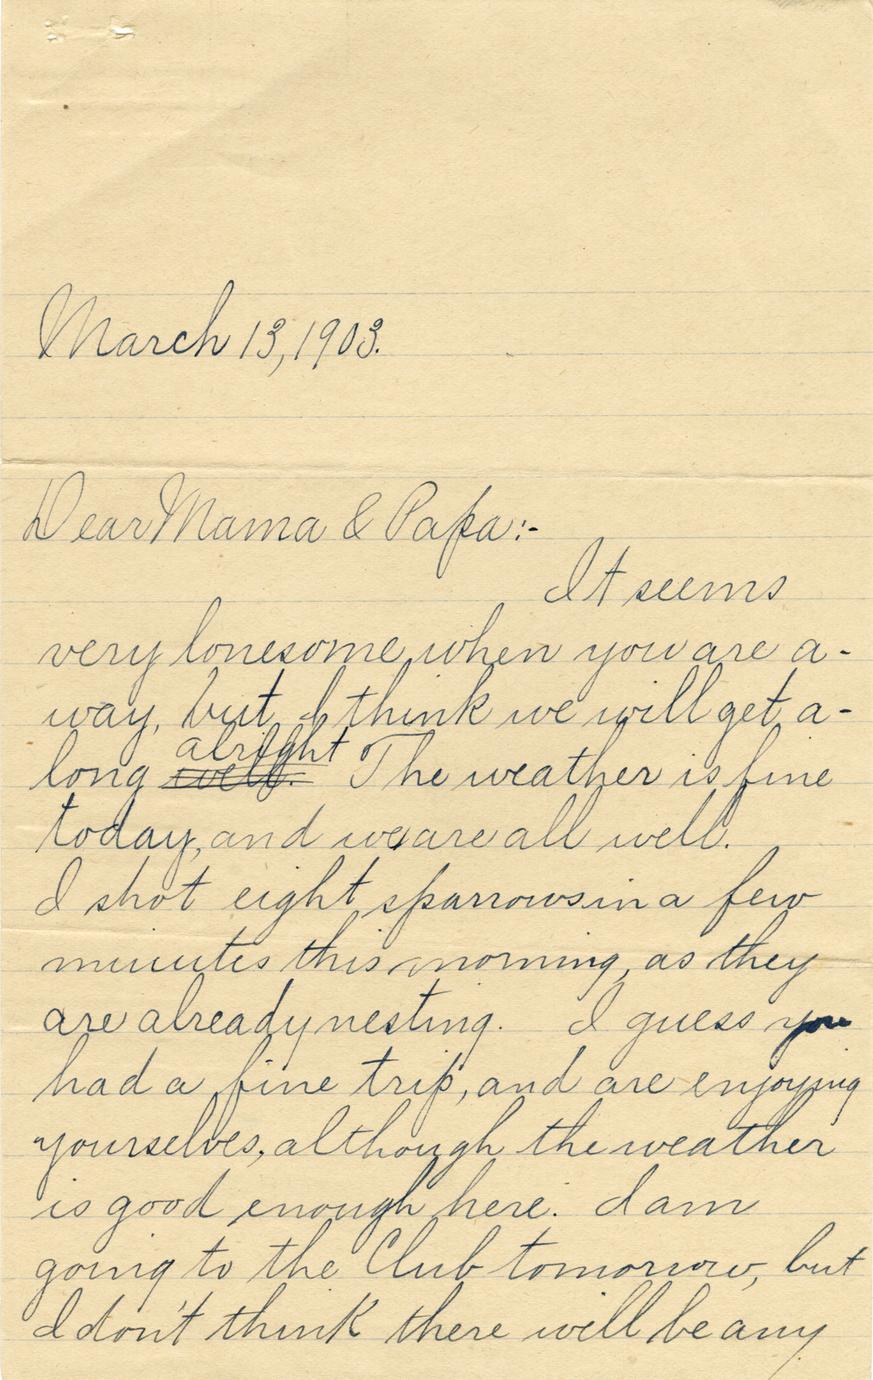 March 13, 1903.
Dear Mama & Papa:-
It seems
very lonesome when you are a-
way, but I think we will get a-
alright
long well. The weather is fine
today, and we are all well.
I shot eight sparrows in a few
minutes this morning, as they
are already nesting. I guess you
had a fine trip, and are enjoying
yourselves, although the weather
is good enough here. I am
going to the Club tomorrow, but
I don't think there will be any